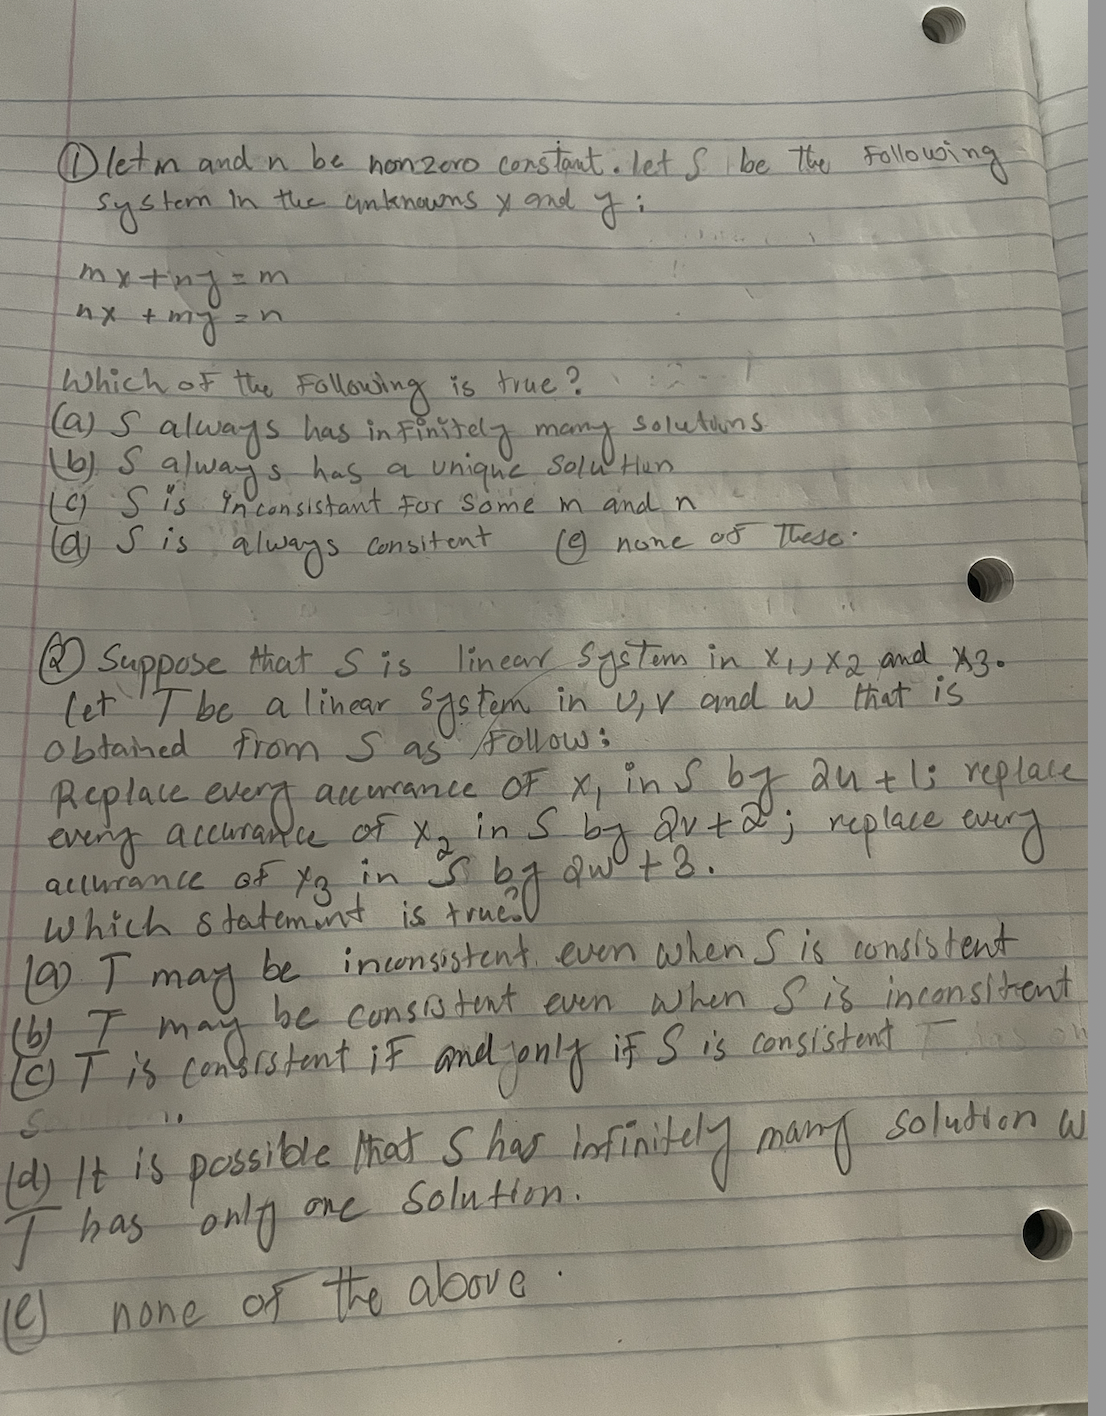 ① let m and n be nonzero constant. let S be the following
system in the unknowns x and y:
mx+ny=m
nx +my=n
Which of the following is true?
(a) S always has infinitely many solutions
(b) S always has a unique solution
(c) S is inconsistant for some m and n
(d) S is always consitent (e) none of these.
② Suppose that S is linear system in x₁, x₂ and x₃.
let T be a linear system in u, v and w that is
obtained from S as follow:
Replace every accurance of x₁ in S by 2u+1; replace
every accurance of x₂ in S by 2v+2; replace every
accurance of x₃ in S by 2w+3.
Which statement is true?
(a) T may be inconsistent even when S is consistent
(b) T may be consistent even when S is inconsitent
(c) T is consistent if and only if S is consistent
(d) It is possible that S has infinitely many solution w
T has only one solution.
(e) none of the above.